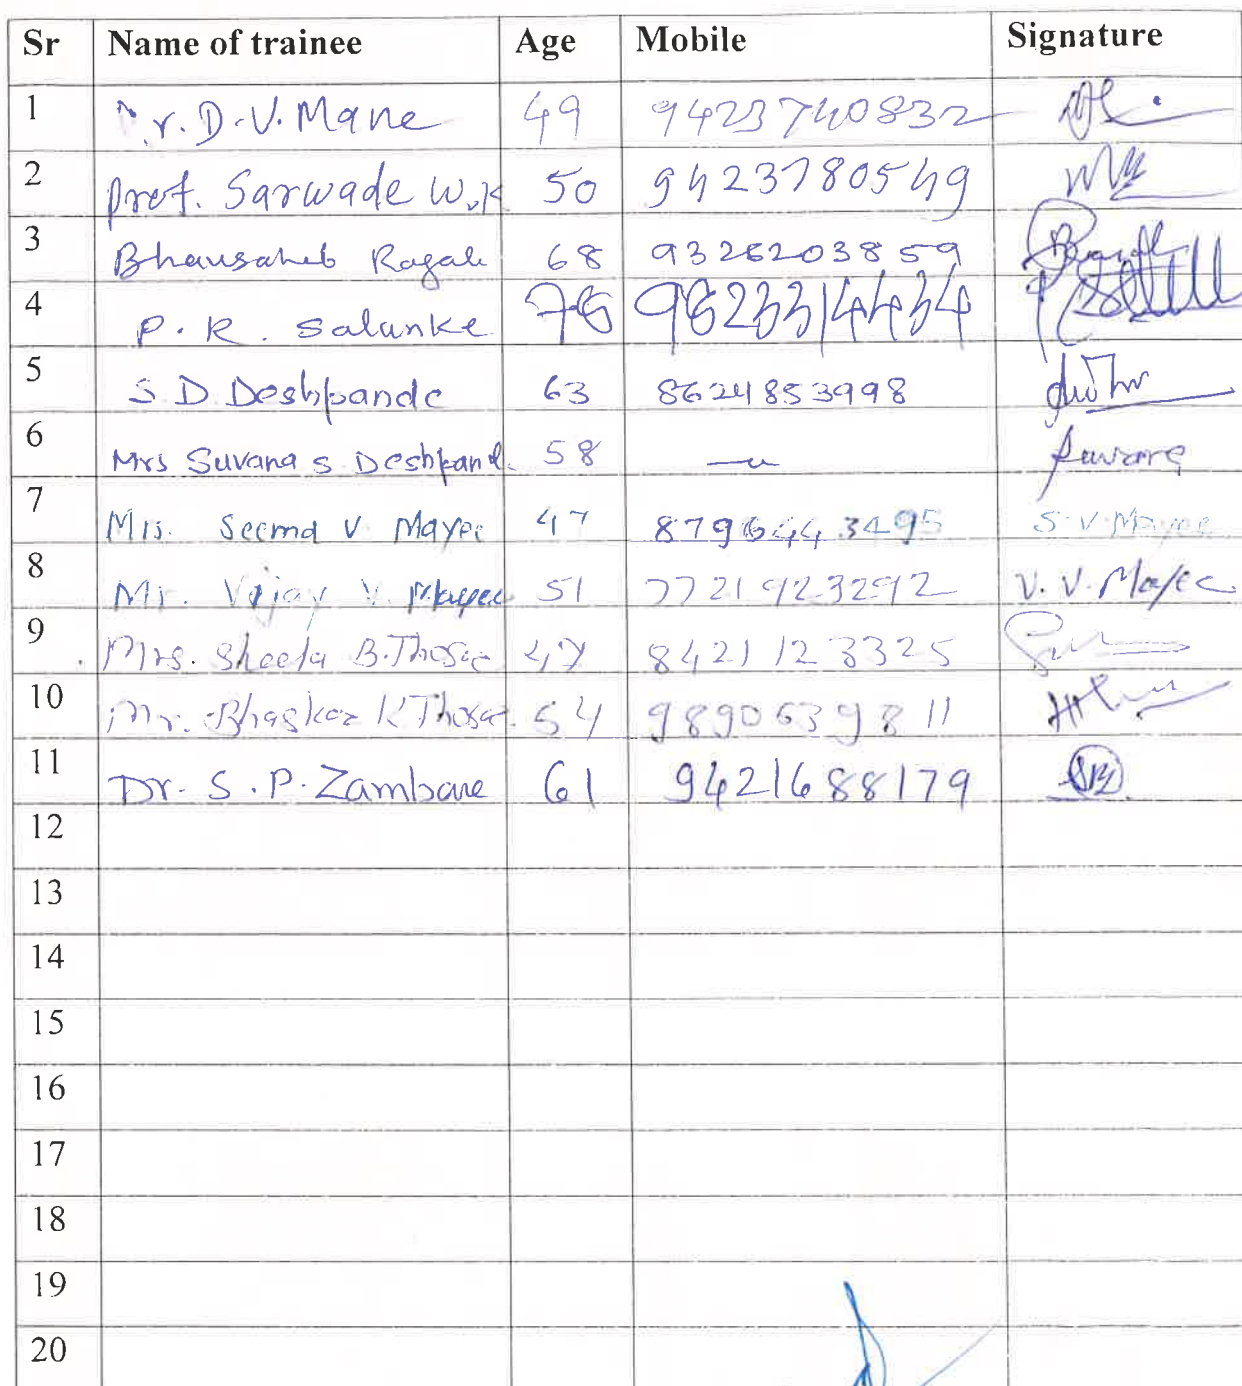 Sr Name of trainee Age Mobile Signature
1 Dr. D. V. Mane 49 9423740832
2 Prof. Sarwade W.K 50 9423780549
3 Bhausaheb Ragade 68 9326203859
4 P. R. Salunke 76 9623314434
5 S D Deshpande 63 8624853998
6 Mrs Suvana S Deshpand. 58
7 Mrs. Seema V Mayee 47 8796443495 S. V. Mayee
8 Mr. Vijay V. Mayee 51 7721923292 V. V. Mayee
9 Mrs. Sheela B. Thosar 47 8421123325
10 Mr. Bhaskar K Thosar. 54 9890639811
11 Dr. S. P. Zambare 61 9421688179
12
13
14
15
16
17
18
19
20